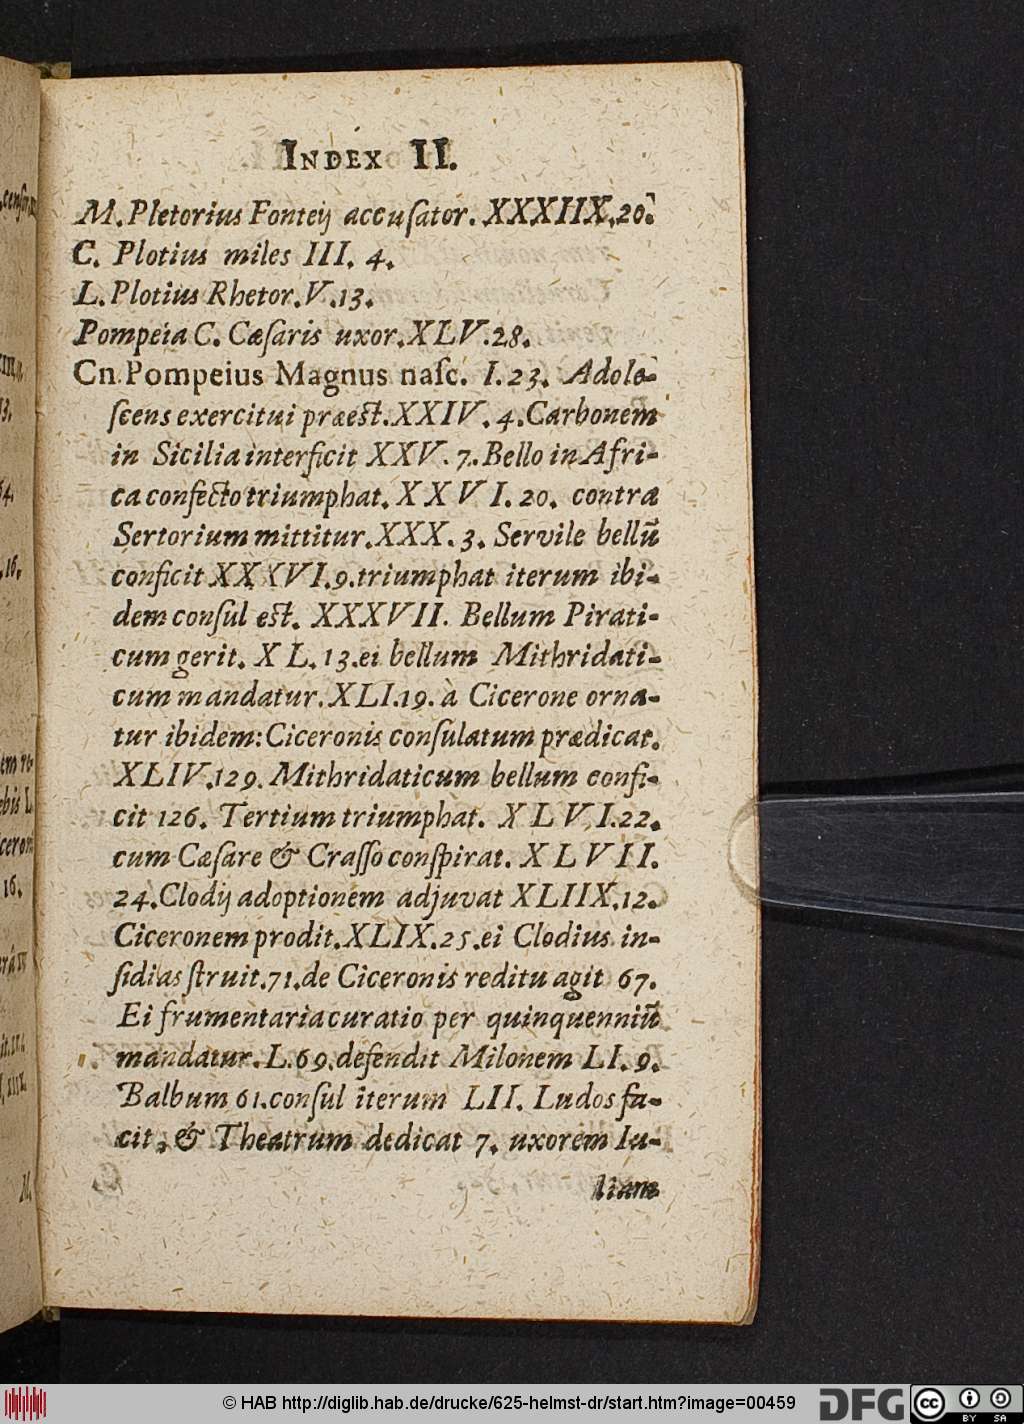 INDEX II.
M. Pletorius Fonteij accuſator. XXXIIX. 20.
C. Plotius miles III. 4.
L. Plotius Rhetor. V. 13.
Pompeia C. Cæſaris uxor. XLV. 28.
Cn. Pompeius Magnus naſc. I. 23. Adole-
ſcens exercitui præest. XXIV. 4. Carbonem
in Sicilia interficit XXV. 7. Bello in Afri-
ca confecto triumphat. XXVI. 20. contra
Sertorium mittitur. XXX. 3. Servile bellũ
conficit XXXVI. 9. triumphat iterum ibi-
dem conſul est. XXXVII. Bellum Pirati-
cum gerit. XL. 13. ei bellum Mithridati-
cum mandatur. XLI. 19. à Cicerone orna-
tur ibidem: Ciceronis conſulatum prædicat.
XLIV. 129. Mithridaticum bellum confi-
cit 126. Tertium triumphat. XLVI. 22.
cum Cæſare & Craſſo conſpirat. XLVII.
24. Clodij adoptionem adjuvat XLIIX. 12.
Ciceronem prodit. XLIX. 25. ei Clodius in-
ſidias ſtruit. 71. de Ciceronis reditu agit 67.
Ei frumentaria curatio per quinquenniũ
mandatur. L. 69. defendit Milonem LI. 9.
Balbum 61. conſul iterum LII. Ludos fa-
cit, & Theatrum dedicat 7. uxorem Iu-
liam
© HAB http://diglib.hab.de/drucke/625-helmst-dr/start.htm?image=00459
DFG
cc
BY SA